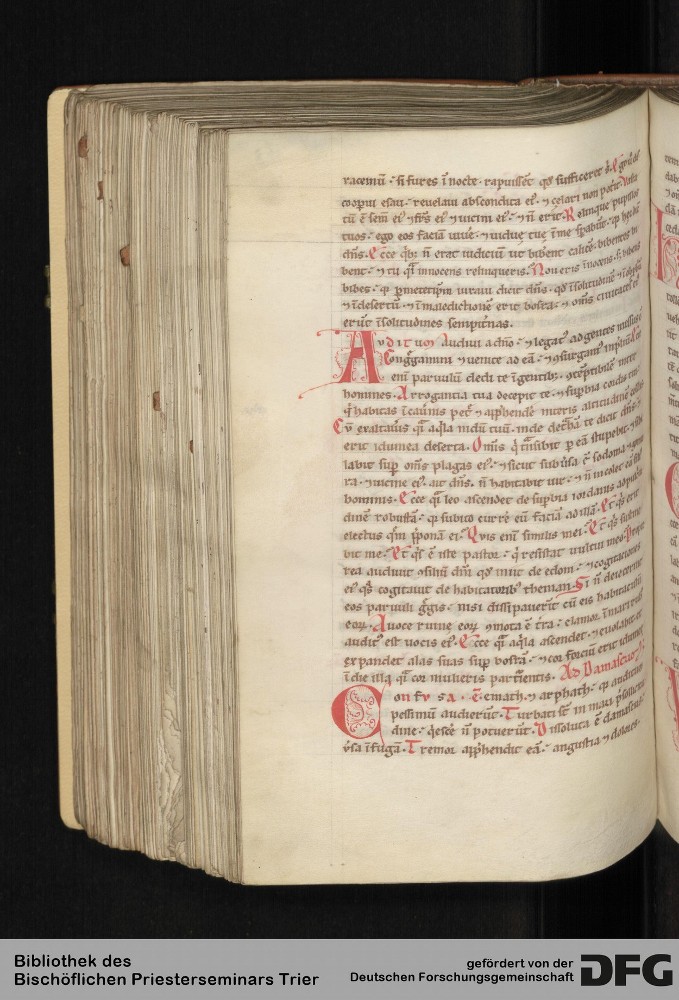 racemū · si fures ī nocte · rapuissēt qđ sufficeret s̄. Ego ū dis
cooperui esau · reuelaui abscondita eiꝰ · ⁊ celari non pot̄it. Vasta
tū ē sem̄ eiꝰ ⁊ fr̄s eiꝰ ⁊ uicini eiꝰ · ⁊ n̄ erit. Relinque pupillos
tuos · ego eos faciā uiuē · ⁊ uidue tue ī me sꝑabūt · q̄ hec dic̄
dn̄s. Ecce qꝫ n̄ erat iudiciū ut bibent calicē · bibentes bi
bent · ⁊ tu q̄i innocens relinqueris. Non eris īnocens · s; bibens
bibes · q̄ ꝑ memetip̄m iuraui dicit dn̄s · qđ ī solitudinē ⁊ ī obpbriū
⁊ ī desertū · ⁊ ī maledictionē erit bosra · ⁊ om̄s ciuitates eiꝰ
erūt ī solitudines sempiternas.
Auditum Audiui a dn̄o · ⁊ legatꝰ ad gentes missus ē
Congregamini ⁊ uenite ad eā · ⁊ ꝯsurgamꝰ in p̄liū. Ecce
enī paruulū dedi te ī gentibꝫ · ꝯtēptibilē inter
homines. Arrogantia tua decepit te · ⁊ suꝑbia cordis tui
q̄ habitas ī cau̇nis petre ⁊ app̄hendē niteris altitudinē collis
Cū exaltau̇is q̄i aq̇la nidū tuū · inde detͣhā te dicit dn̄s · ⁊
erit idumea deserta. Om̄s q̇ tͣnsibit ꝑ eā stupebit · ⁊ sibi
labit suꝑ om̄s plagas eiꝰ · ⁊ sicut subu̇sa ē sodoma ⁊ gomor
ra · ⁊ uicine eiꝰ · ait dn̄s. n̄ habitabit uir · ⁊ n̄ īcolet eā filiꝰ
hominis. Ecce q̄i leo ascendet de suꝑbia iordanis ad pulcri
dinē robustā · q̄ subito currē eū faciā ad illā. Et q̇s erit
electus quē p̄ponā ei. Quis enī similis mei. Et q̇s sustine
bit me. Et q̇s ē iste pastor · q̇ resistat uultui meo. Propte
rea audiuit ꝯsiliū dn̄i qđ iniit de edom · ⁊ cogitationes
eiꝰ q̄s cogitauit de habitatoribꝰ theman. Si n̄ deiecerint
eos paruuli gregis · nisi dissipauerit̄ cū eis habitaculū
eoꝝ. A uoce ruine eoꝝ ꝯmota ē tr̄a · clamor ī mari rubro
auditꝰ est uocis eiꝰ. Ecce q̄i aq̇la ascendet · ⁊ euolabit ⁊
expandet alas suas suꝑ bosrā · ⁊ cor fortiū erit idumee
ī die illa q̄i cor mulieris parturientis. Ad Damascum
Confusa · ē · emath · ⁊ arphath · q̄ auditum
pessimum audierūt · Turbati st̄ in mari p̄ sollicitu
dine · q̇escē n̄ potuerūt. Dissoluta ē damascus
u̇sa ī fugā. Tremor app̄hendit eā · angustia ⁊ dolores
Bibliothek des
Bischöflichen Priesterseminars Trier
gefördert von der
Deutschen Forschungsgemeinschaft DFG